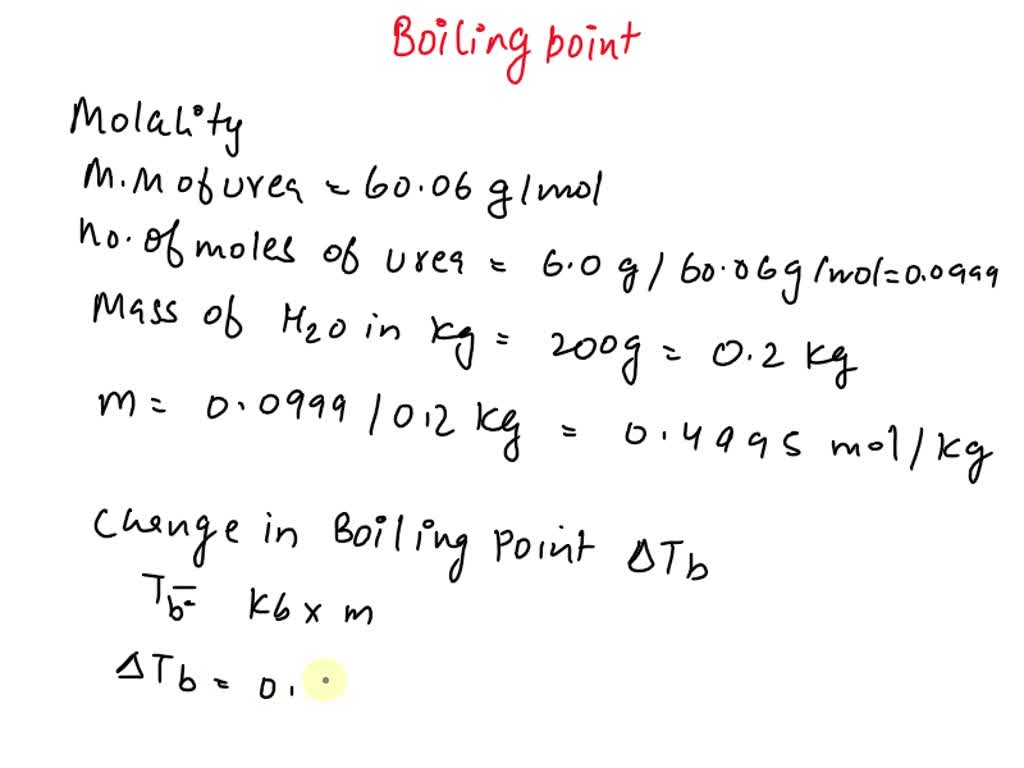 Boiling point
Molality
M.M of urea = 60.06 g/mol
no. of moles of urea = 6.0 g / 60.06 g/mol = 0.0999
Mass of H2O in kg = 200g = 0.2 kg
m = 0.0999 / 0.2 kg = 0.4995 mol/kg
Change in Boiling Point ΔTb
Tb = Kb x m
ΔTb = 0.